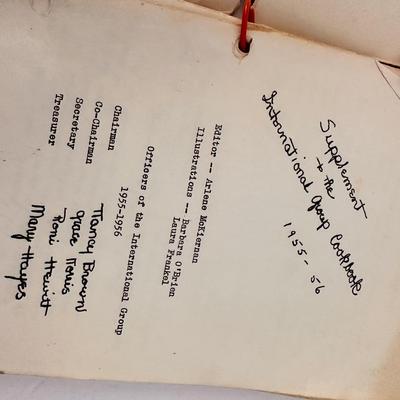 Supplement
to the
International Group Cookbook
1955-56
Editor -- Arlene McKiernan
Illustrations -- Barbara O'Brien
Laura Frankel
Officers of the International Group
1955-1956
Chairman Nancy Brown
Co-Chairman Grace Morris
Secretary Roni Hewitt
Treasurer Mary Hayes